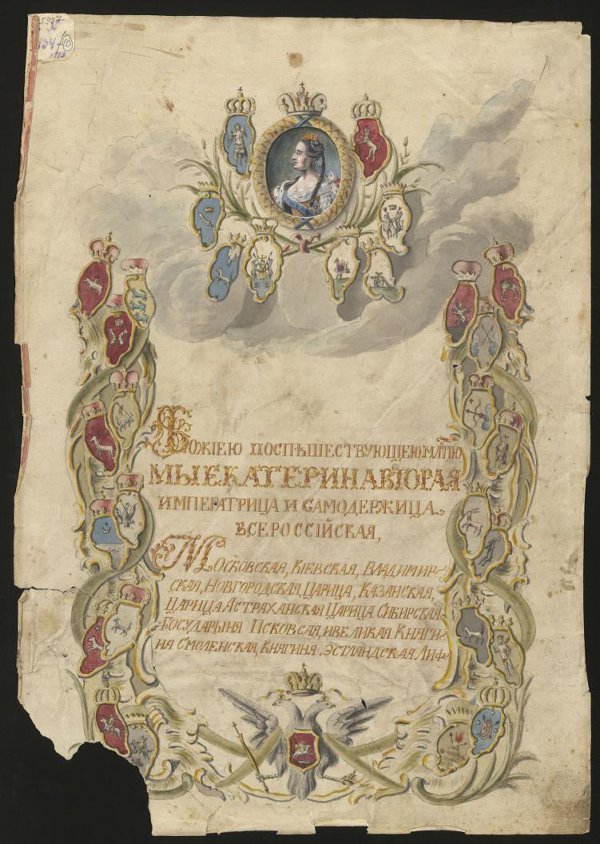 БОЖІЕЮ ПОСПѢШЕСТВУЮЩЕЮ МЛТІЮ
МЫ ЕКАТЕРИНА ВТОРАЯ
ИМПЕРАТРИЦА И САМОДЕРЖИЦА
ВСЕРОССІЙСКАЯ,
МОСКОВСКАЯ, КІЕВСКАЯ, ВЛАДИМИР-
СКАЯ, НОВГОРОДСКАЯ, ЦАРИЦА, КАЗАНСКАЯ,
ЦАРИЦА АСТРАХАНСКАЯ ЦАРИЦА СИБИРСКАЯ
ГОСУДАРЫНЯ ПСКОВСАЯ, И ВЕЛИКАЯ КНЯГИ-
НЯ СМОЛЕНСКАЯ, КНЯГИНЯ ЭСТЛЯНДСКАЯ ЛИФ-